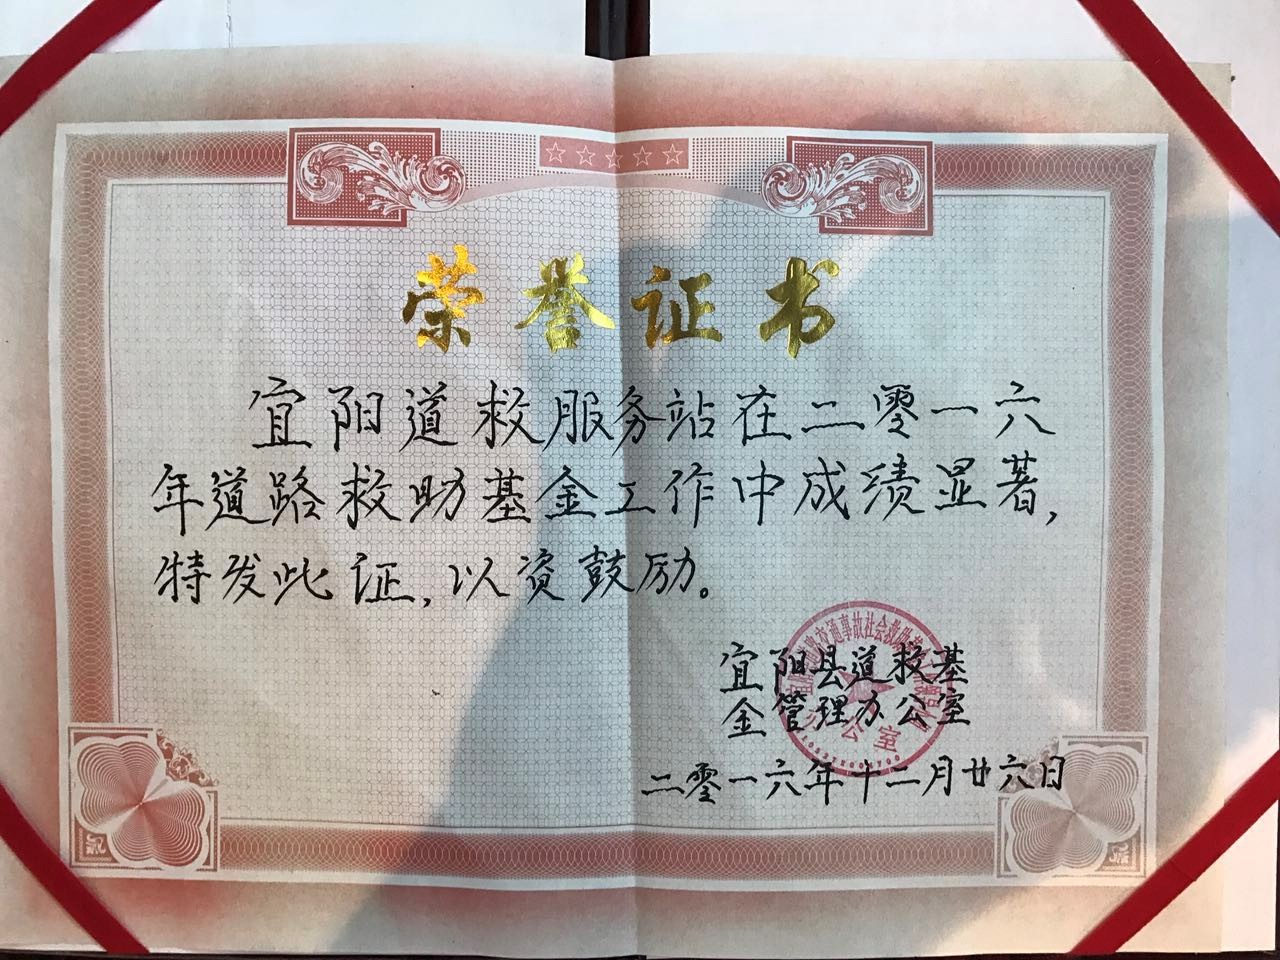 荣誉证书
宜阳道救服务站在二零一六
年道路救助基金工作中成绩显著,
特发此证,以资鼓励。
宜阳县道救基
金管理办公室
二零一六年十二月廿六日
交通事故社会救助
办公室